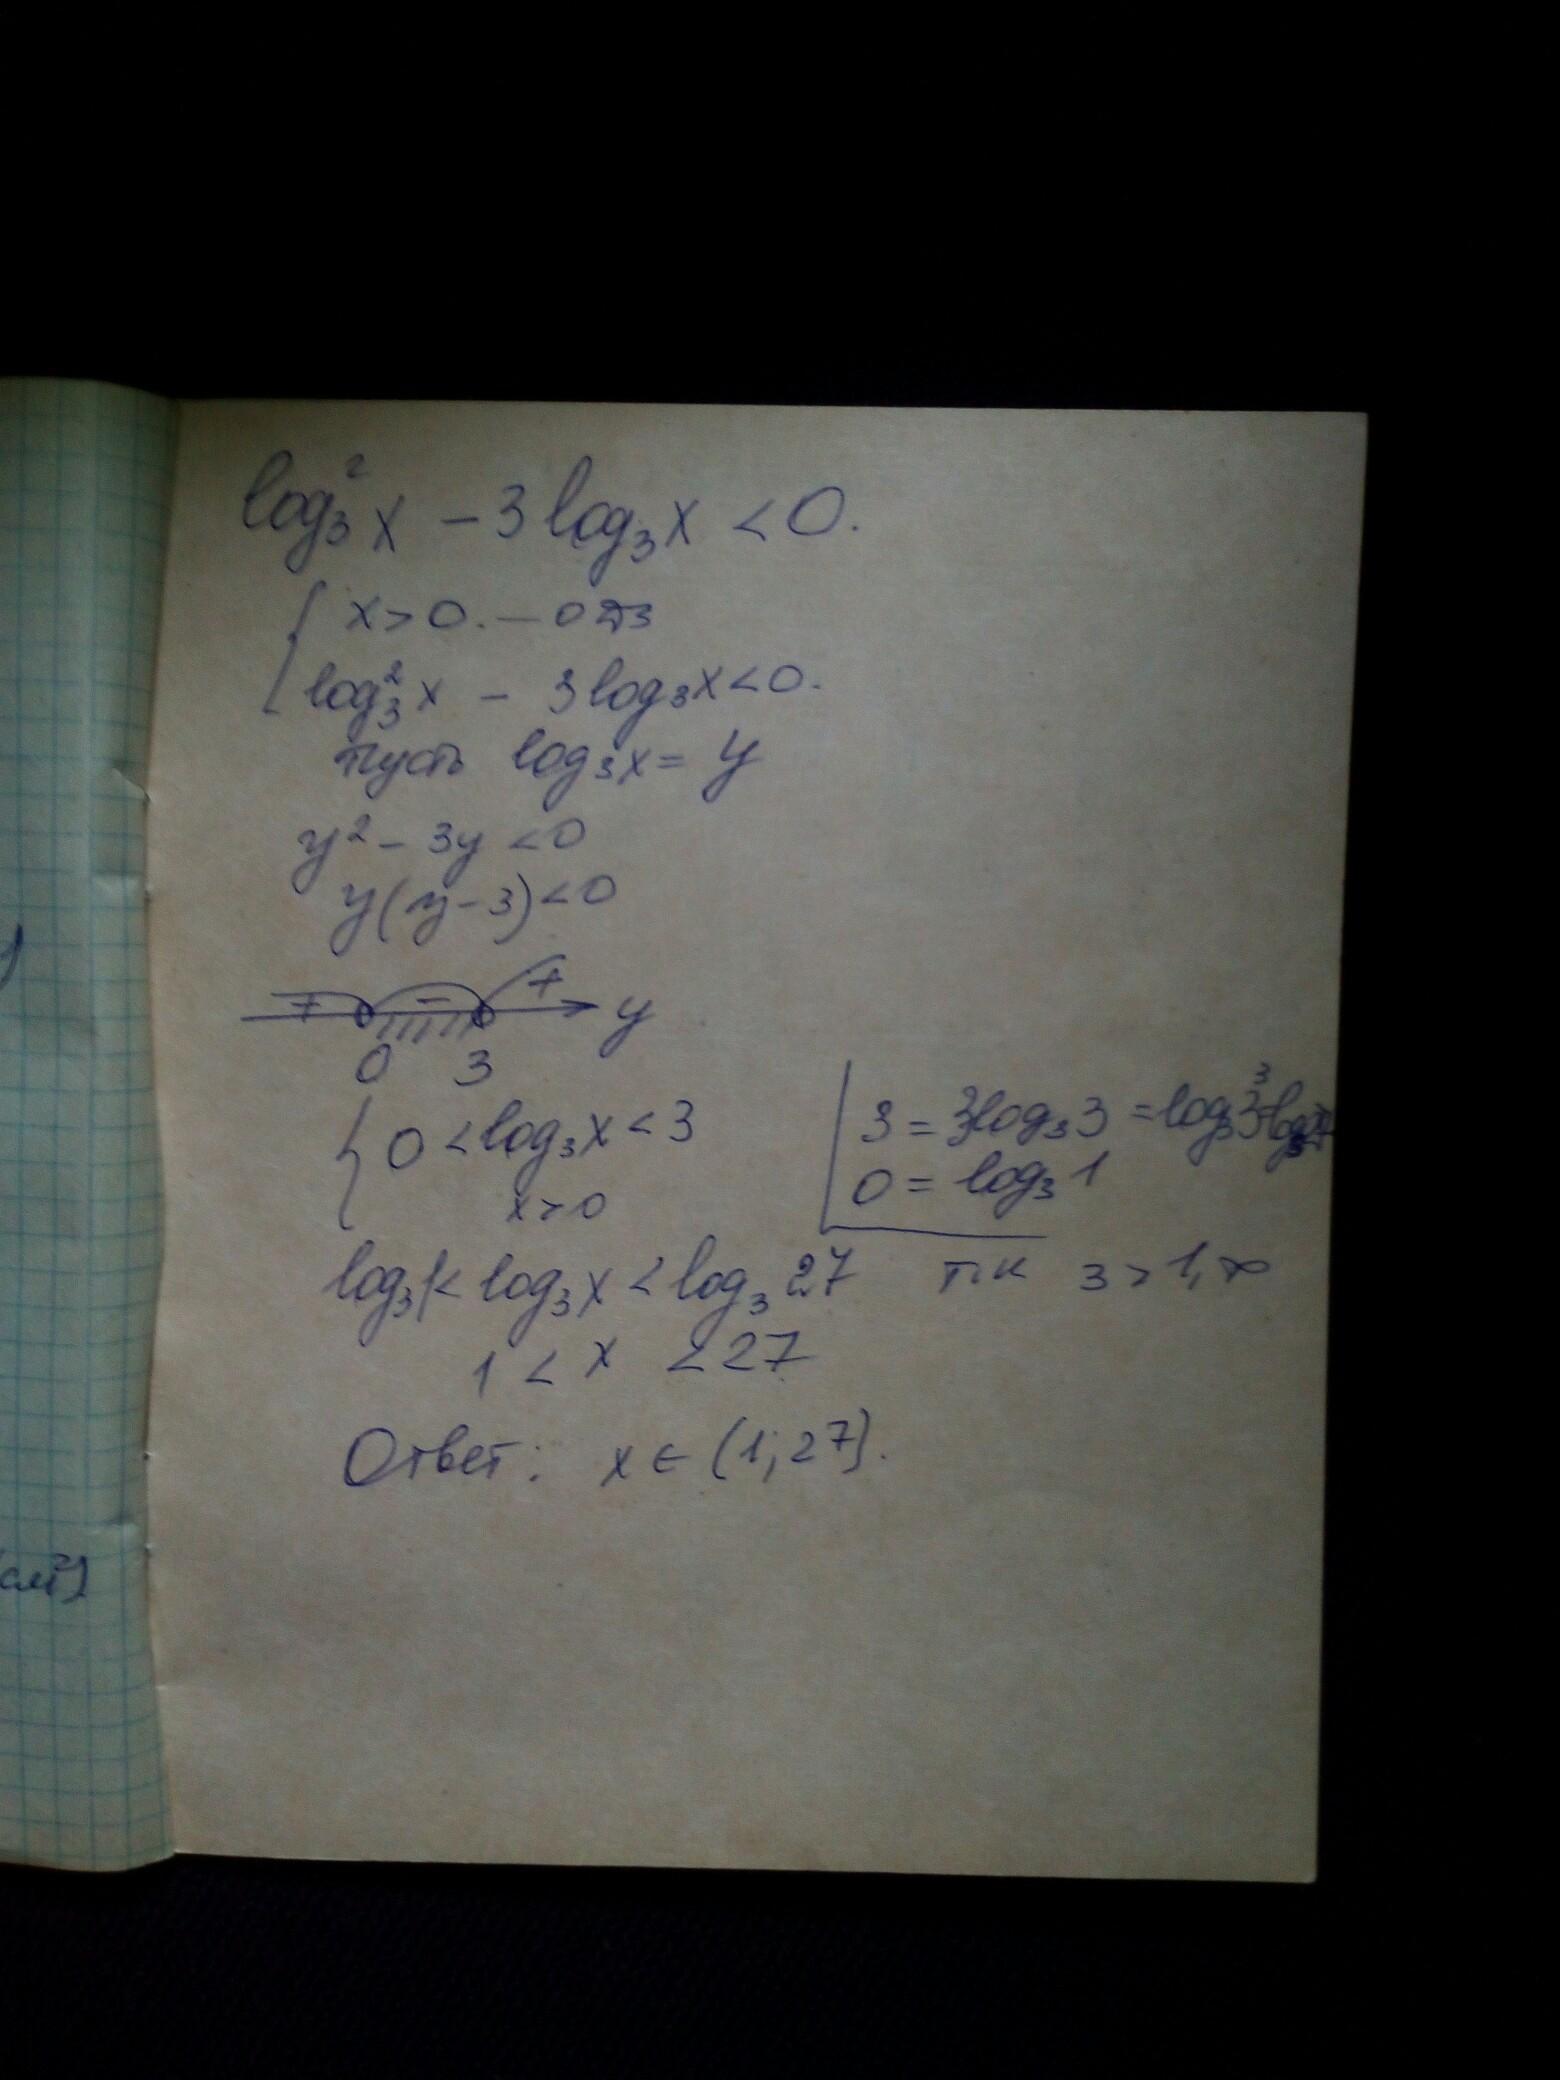 log₃²x - 3log₃x < 0.
x > 0. - ОДЗ
log₃²x - 3log₃x < 0.
Пусть log₃x = y
y² - 3y < 0
y(y-3) < 0
+ - + y
0 3
0 < log₃x < 3
x > 0
3 = 3log₃3 = log₃3³ = log₃27
0 = log₃1
log₃1 < log₃x < log₃27 т.к 3 > 1, то
1 < x < 27
Ответ: x ∈ (1; 27).
см²)